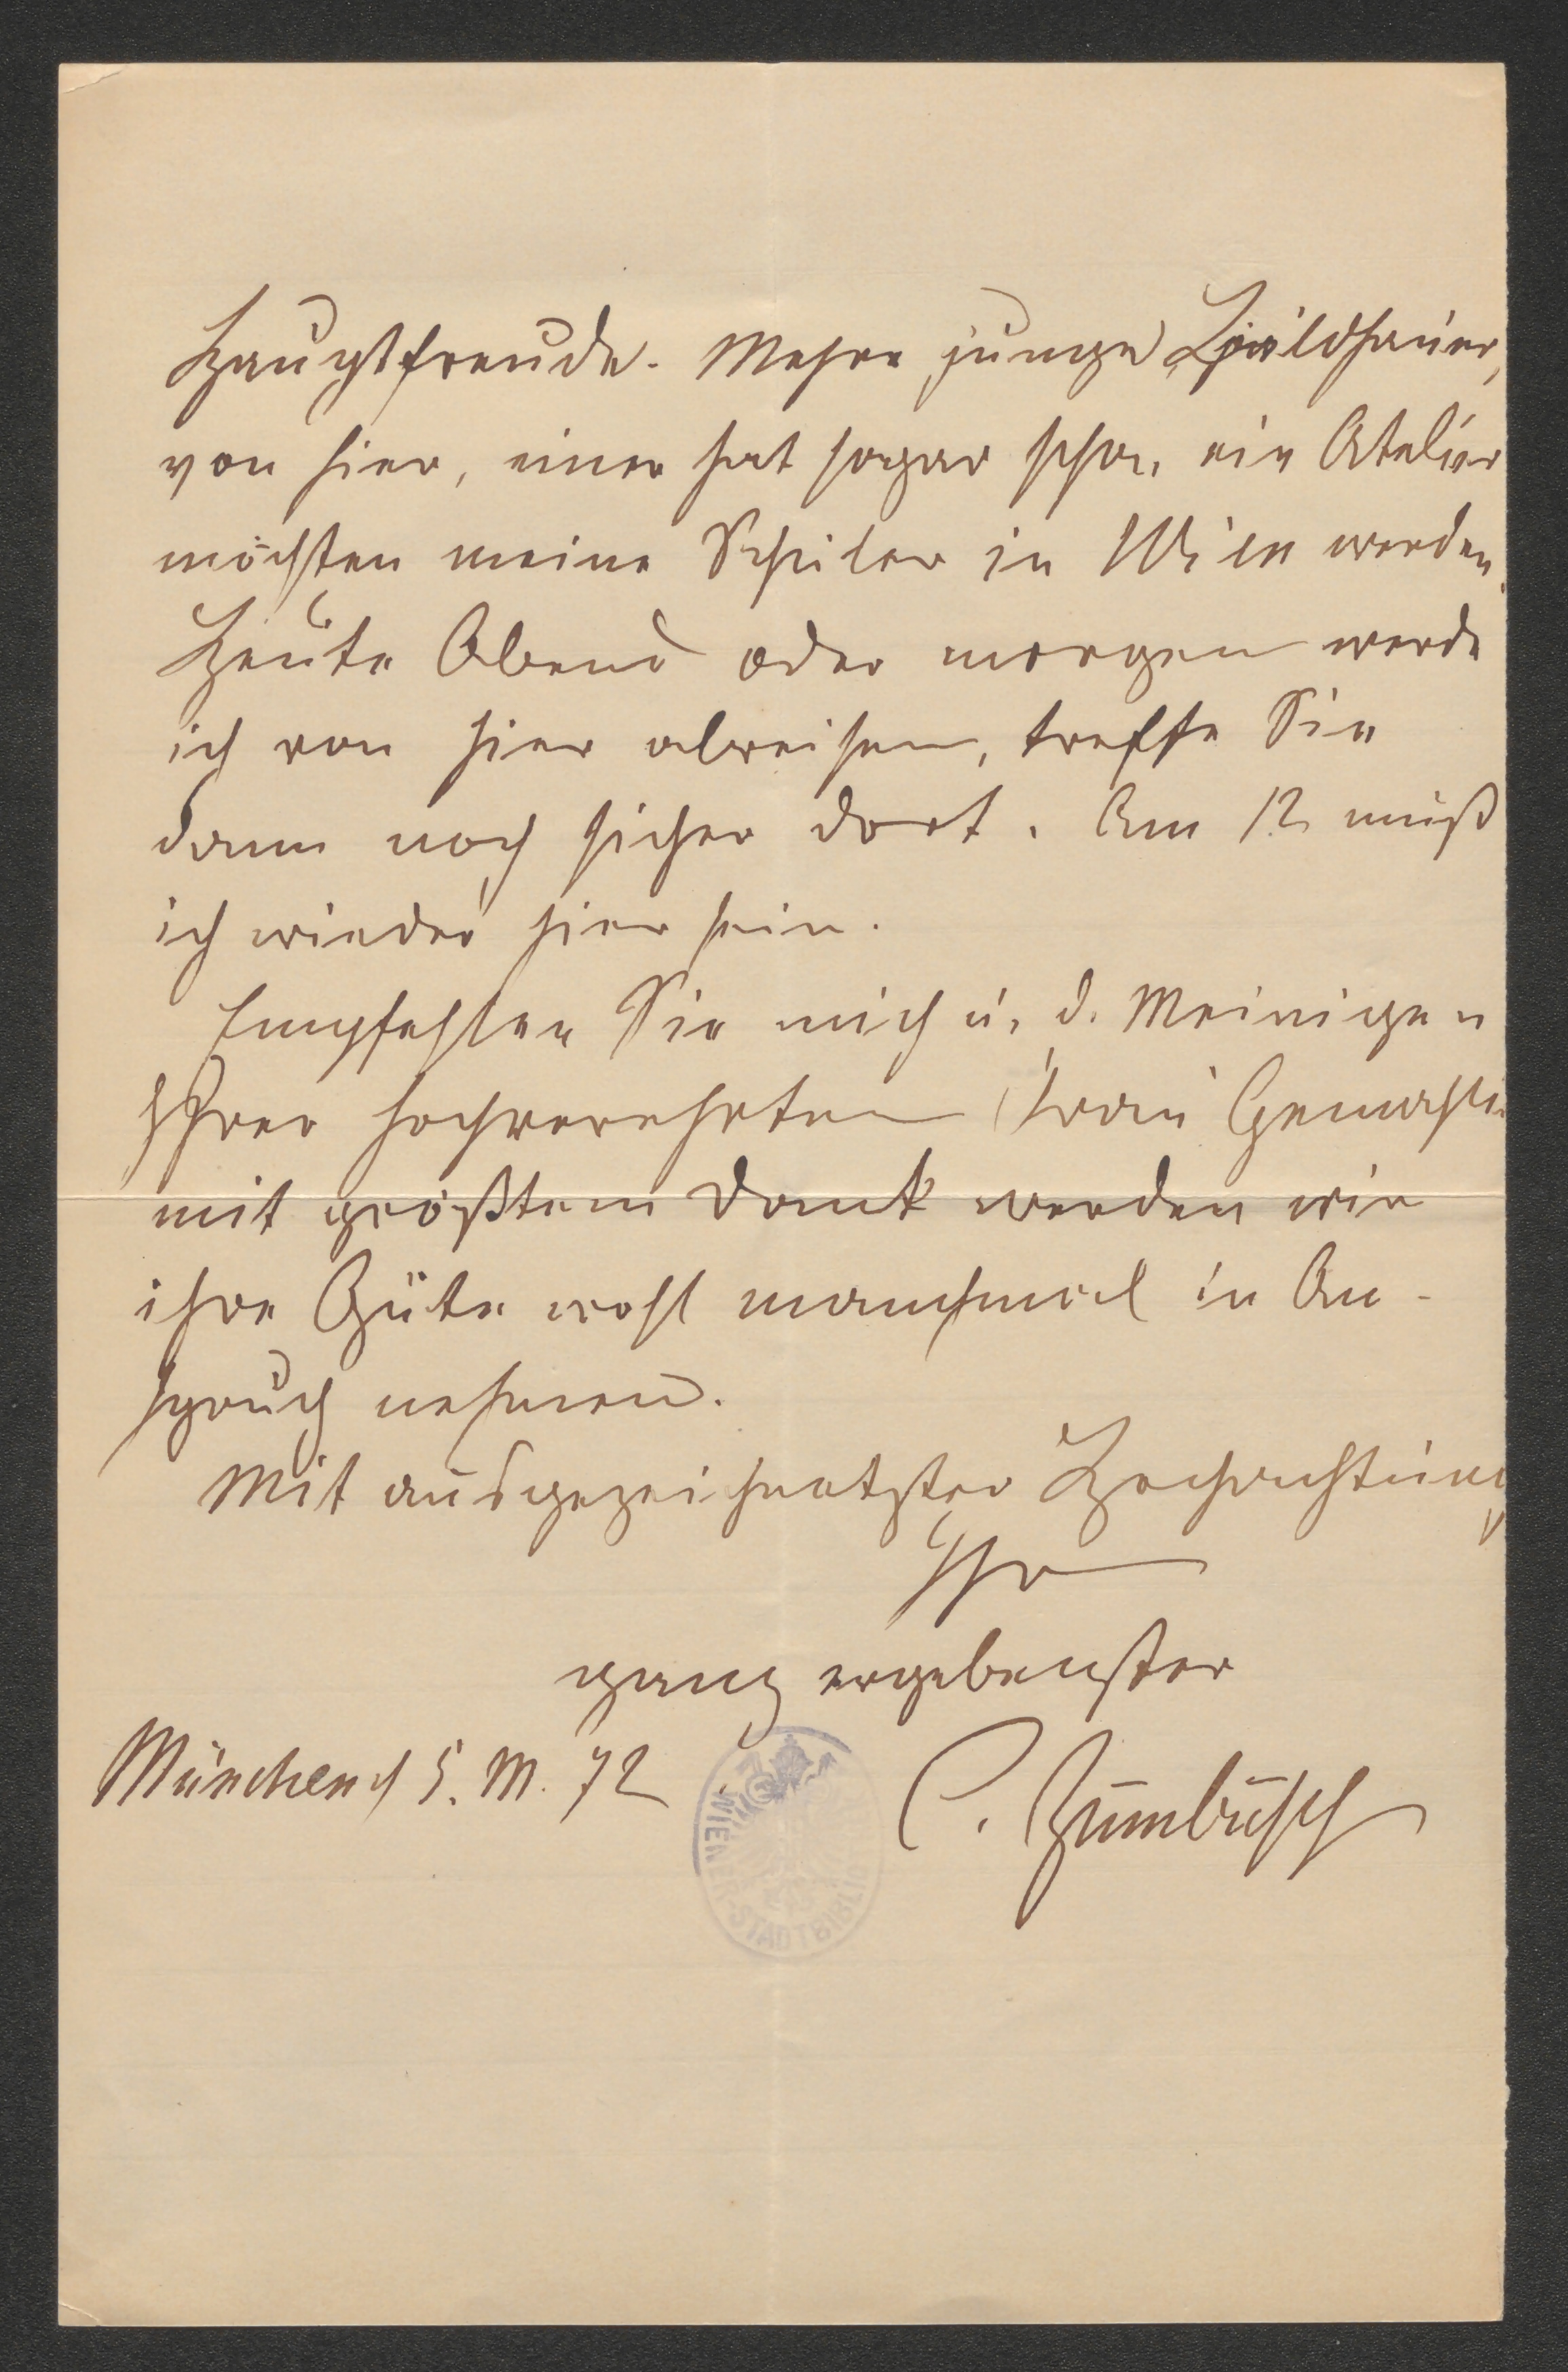 Hauptfreude. Mehre junge Bildhauer,
von hier, einer hat sogar schon ein Atelier
möchten meine Schüler in Wien werden.
Heute Abend oder morgen werde
ich von hier abreisen, treffe Sie
dann noch sicher dort. Am 12 muß
ich wieder hier sein.
Empfehlen Sie mich u. d. Meinigen
Ihrer hochverehrten Frau Gemahlin
mit größtem Dank werden wir
ihre Güte wohl manchmal in An-
spruch nehmen.
Mit ausgezeichnetster Hochachtung
Ihr
ganz ergebenster
München d 5. M. 72
C. Zumbusch
WIENER-STADTBIBLIO